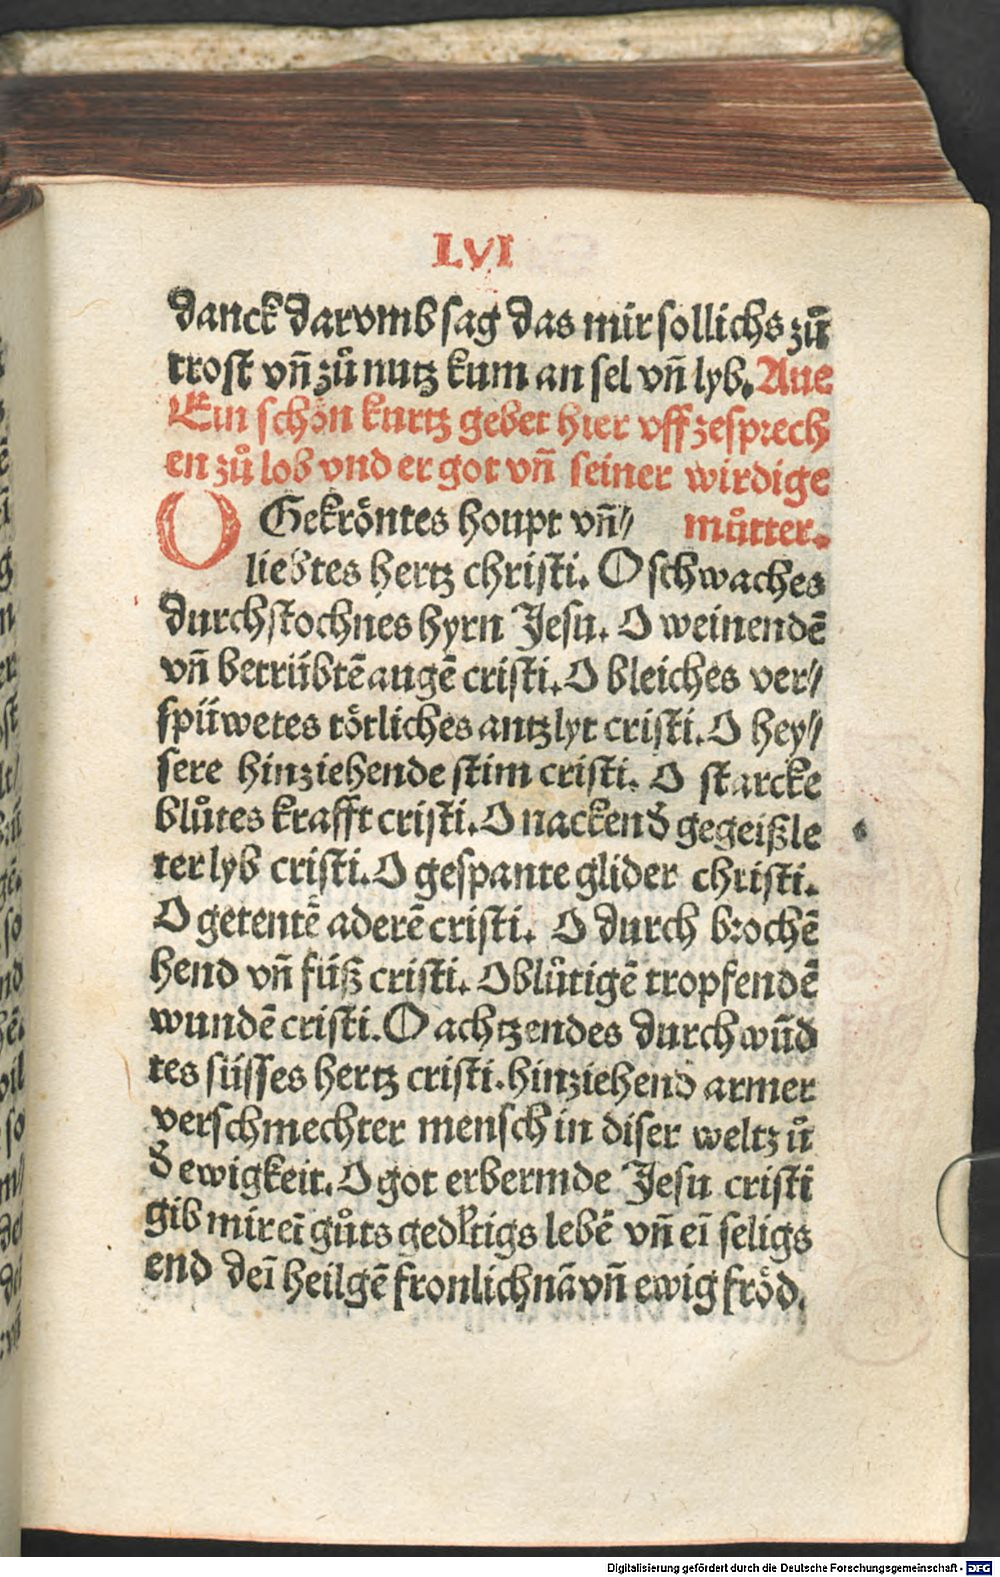 LVI
danck darvmb sag das mir sollichs zů
trost vñ zů nutz kum an sel vñ lyb. Aue
Ein schön kurtz gebet hier vff zesprech
en zů lob vnd er got vñ seiner wirdige
O Gekröntes houpt vñ// můtter.
liebtes hertz christi. O schwaches
durchstochnes hyrn Jesu. O weinendē
vñ betrübtē augē cristi. O bleiches ver//
spüwetes tötliches antzlyt cristi. O hey//
sere hinziehende stim cristi. O starcke
blůtes krafft cristi. O nackend gegeißle
ter lyb cristi. O gespante glider christi.
O getentē aderē cristi. O durch brochē
hend vñ füß cristi. O blůtigē tropfendē
wundē cristi. O achtzendes durch wūd
tes süsses hertz cristi. hinziehend armer
verschmechter mensch in diser welt zů
d̄ ewigkeit. O got erbermde Jesu cristi
gib mir eī gůts lebē vñ eī seligs
end deī heilgē fronlichnā vñ ewig fröd.
Digitalisierung gefördert durch die Deutsche Forschungsgemeinschaft - DFG